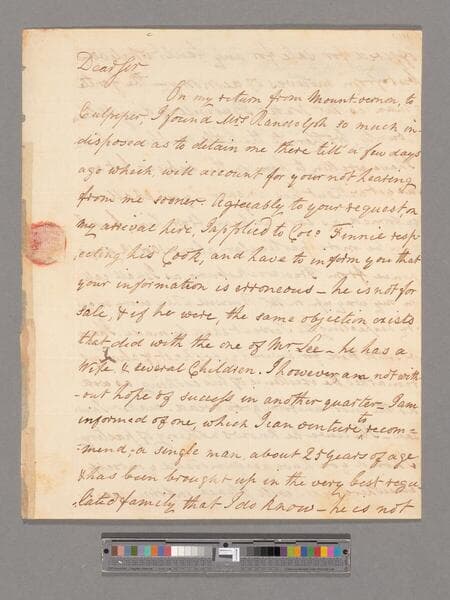 Dear Sir
On my return from Mount vernon, to
Culpeper, I found Mrs Randolph so much in-
disposed as to detain me there till a few days
ago which will account for your not hearing
from me sooner. Agreeably to your request, on
my arrival here, I applied to Colo Finnie resp-
ecting his Cook, and have to inform you that
your information is erroneous – he is not for
sale, & if he were, the same objection exists
that did with the one of Mr Lee – he has a
Wife & several Children. I however, am not with
-out hope of success in another quarter – I am
informed of one, which I can venture to recom=
-mend, – a single man, about 25 years of age
& has been brought up in the very best regu
-lated family that I do know – he is not